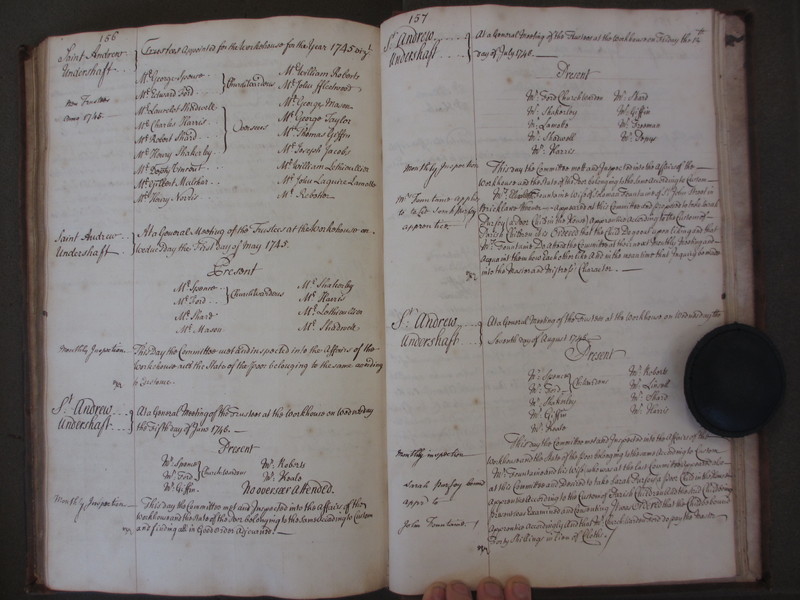 156
Saint Andrew
Undershaft
Trustees Appointed for the Workhouse for the Year 1745
New Trustees
Anno 1745
Mr. George Spence
Mr. Edward Ford
Churchwardens
Mr. Launcelot Shadwell
Mr. Charles Harris
Mr. Robert Shard
Mr. Henry Shakerley
Overseers
Mr. Henry Norris
Mr. William Roberts
Mr. John
Mr. George Mason
Mr. George Taylor
Mr. Thomas Giffin
Mr. Joseph Jacobs
Mr. William Lethieullier
Mr. John Laguire Lamotte
Saint Andrew
Undershaft
At a General Meeting of the Trustees at the Workhouse on
Wednesday the First day of May 1745.
Present
Mr. Spence
Mr. Ford
Churchwardens
Mr. Shard
Mr. Mason
Mr. Shakerley
Mr. Harris
Mr. Lethieullier
Mr. Shadwell
Monthly Inspection
This day the Committee met and inspected into the Affairs of the
Workhouse and the State of the Poor belonging to the same according
to Custome.
St. Andrew
Undershaft
At a General Meeting of the Trustees at the Workhouse on Wednesday
the Fifth day of June 1746.
Present
Mr. Spence
Mr. Ford
Churchwardens
Mr. Giffin
Mr. Roberts
No overseer Attended.
Monthly Inspection
This day the Committee met and Inspected into the Affairs of the
Workhouse and the State of the Poor belonging to the same according to Custom
and finding all in Good order Adjourned.
157
St. Andrew
Undershaft
At a General Meeting of the Trustees at the Workhouse on Friday the
day of July 1746.
Present
Mr. Ford Churchwarden
Mr. Shakerley
Mr. Lamotte
Mr. Shadwell
Mr. Harris
Mr. Shard
Mr. Giffin
Mr. Freeman
Monthly Inspection
This day the Committee met and Inspected into the Affairs of the
Workhouse and the State of the Poor belonging to the same According to Custom
Mr. Fountaine applys
to take Sarah
apprentice
Fountaine Wife of Fountaine of St. John Street in
appeared at this Committee and proposed to take Sarah
a Poor Child in the House Apprentice according to the Custom of
Parish Children it is Ordered that the Child Do go upon liking and that
Mr. Fountaine Do attend the Committee at their next Monthly Meeting and
Acquaint them how Each other like And in the mean time that Inquiry be made
into the Master and Mistress's Character.
St. Andrew
Undershaft
At a General Meeting of the Trustees at the Workhouse, on Wednesday the
Seventh day of August 1746.
Present
Mr. Spence
Mr. Ford
Churchwardens
Mr. Shakerley
Mr. Giffin
Mr. Roberts
Mr. Shard
Mr. Harris
Monthly inspection
This day the Committee met and Inspected into the Affairs of the
Workhouse and the State of the Poor belonging to the same according to Custom
Sarah bound
app to
John Fountaine
Mr. Fountaine and his Wife who was at the last Committee
at this Committee and Desired to take Sarah a Poor Child in the House
Apprentice According to the Custom of Parish Children
Examined and Consenting It was Ordered that the Child be bound
Apprentice Accordingly And that Mr. Churchwarden Ford do pay the
Forty Shillings in lieu of Cloths.